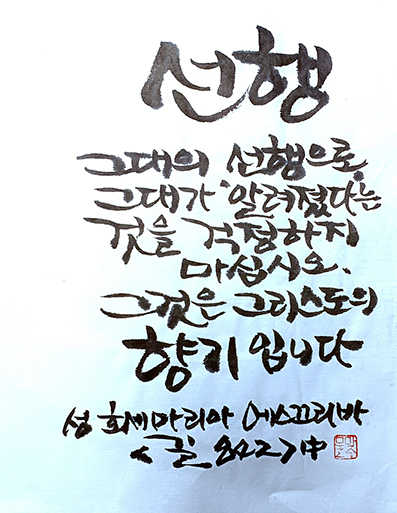 선행
그대의 선행으로
그대가 알려졌다는
것을 걱정하지
마십시오.
그것은 그리스도의
향기 입니다
성 호세마리아 에스끄리바
<길 842>中